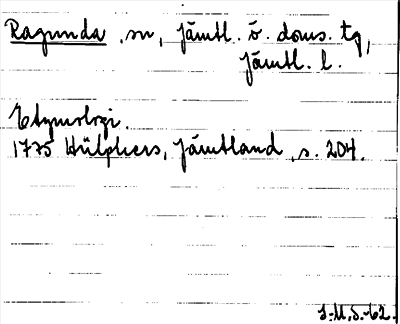 Ragunda sn, Jämtl. ö. doms. tg,
Jämtl. l.
Etymologi.
1775 Hülphers, Jämtland, s. 204.
J.M.S.-62.